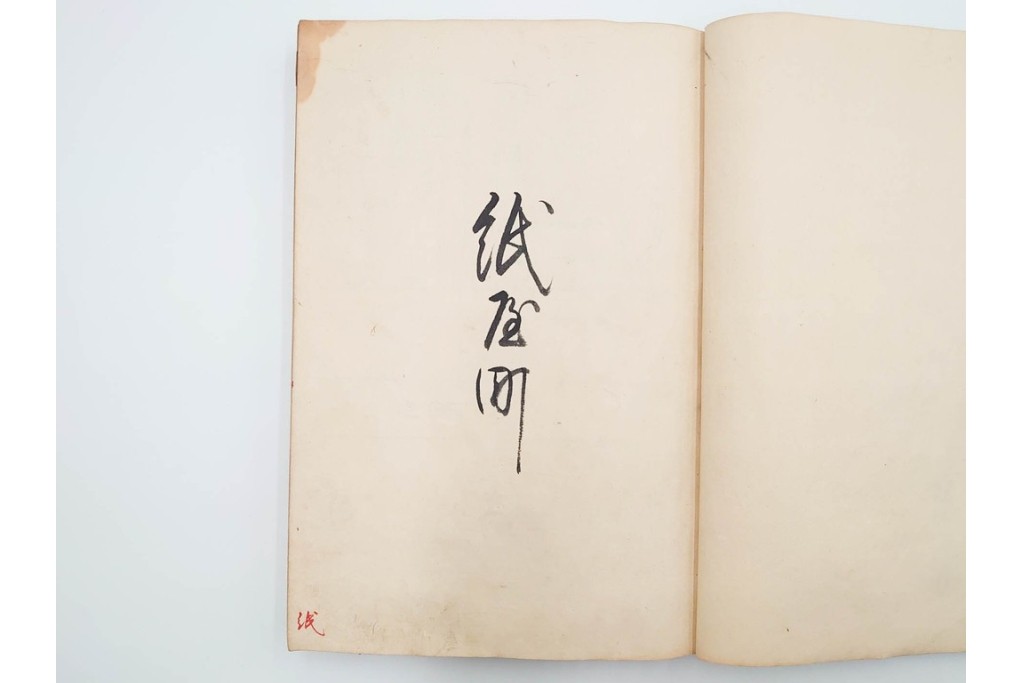 紙屋町
紙